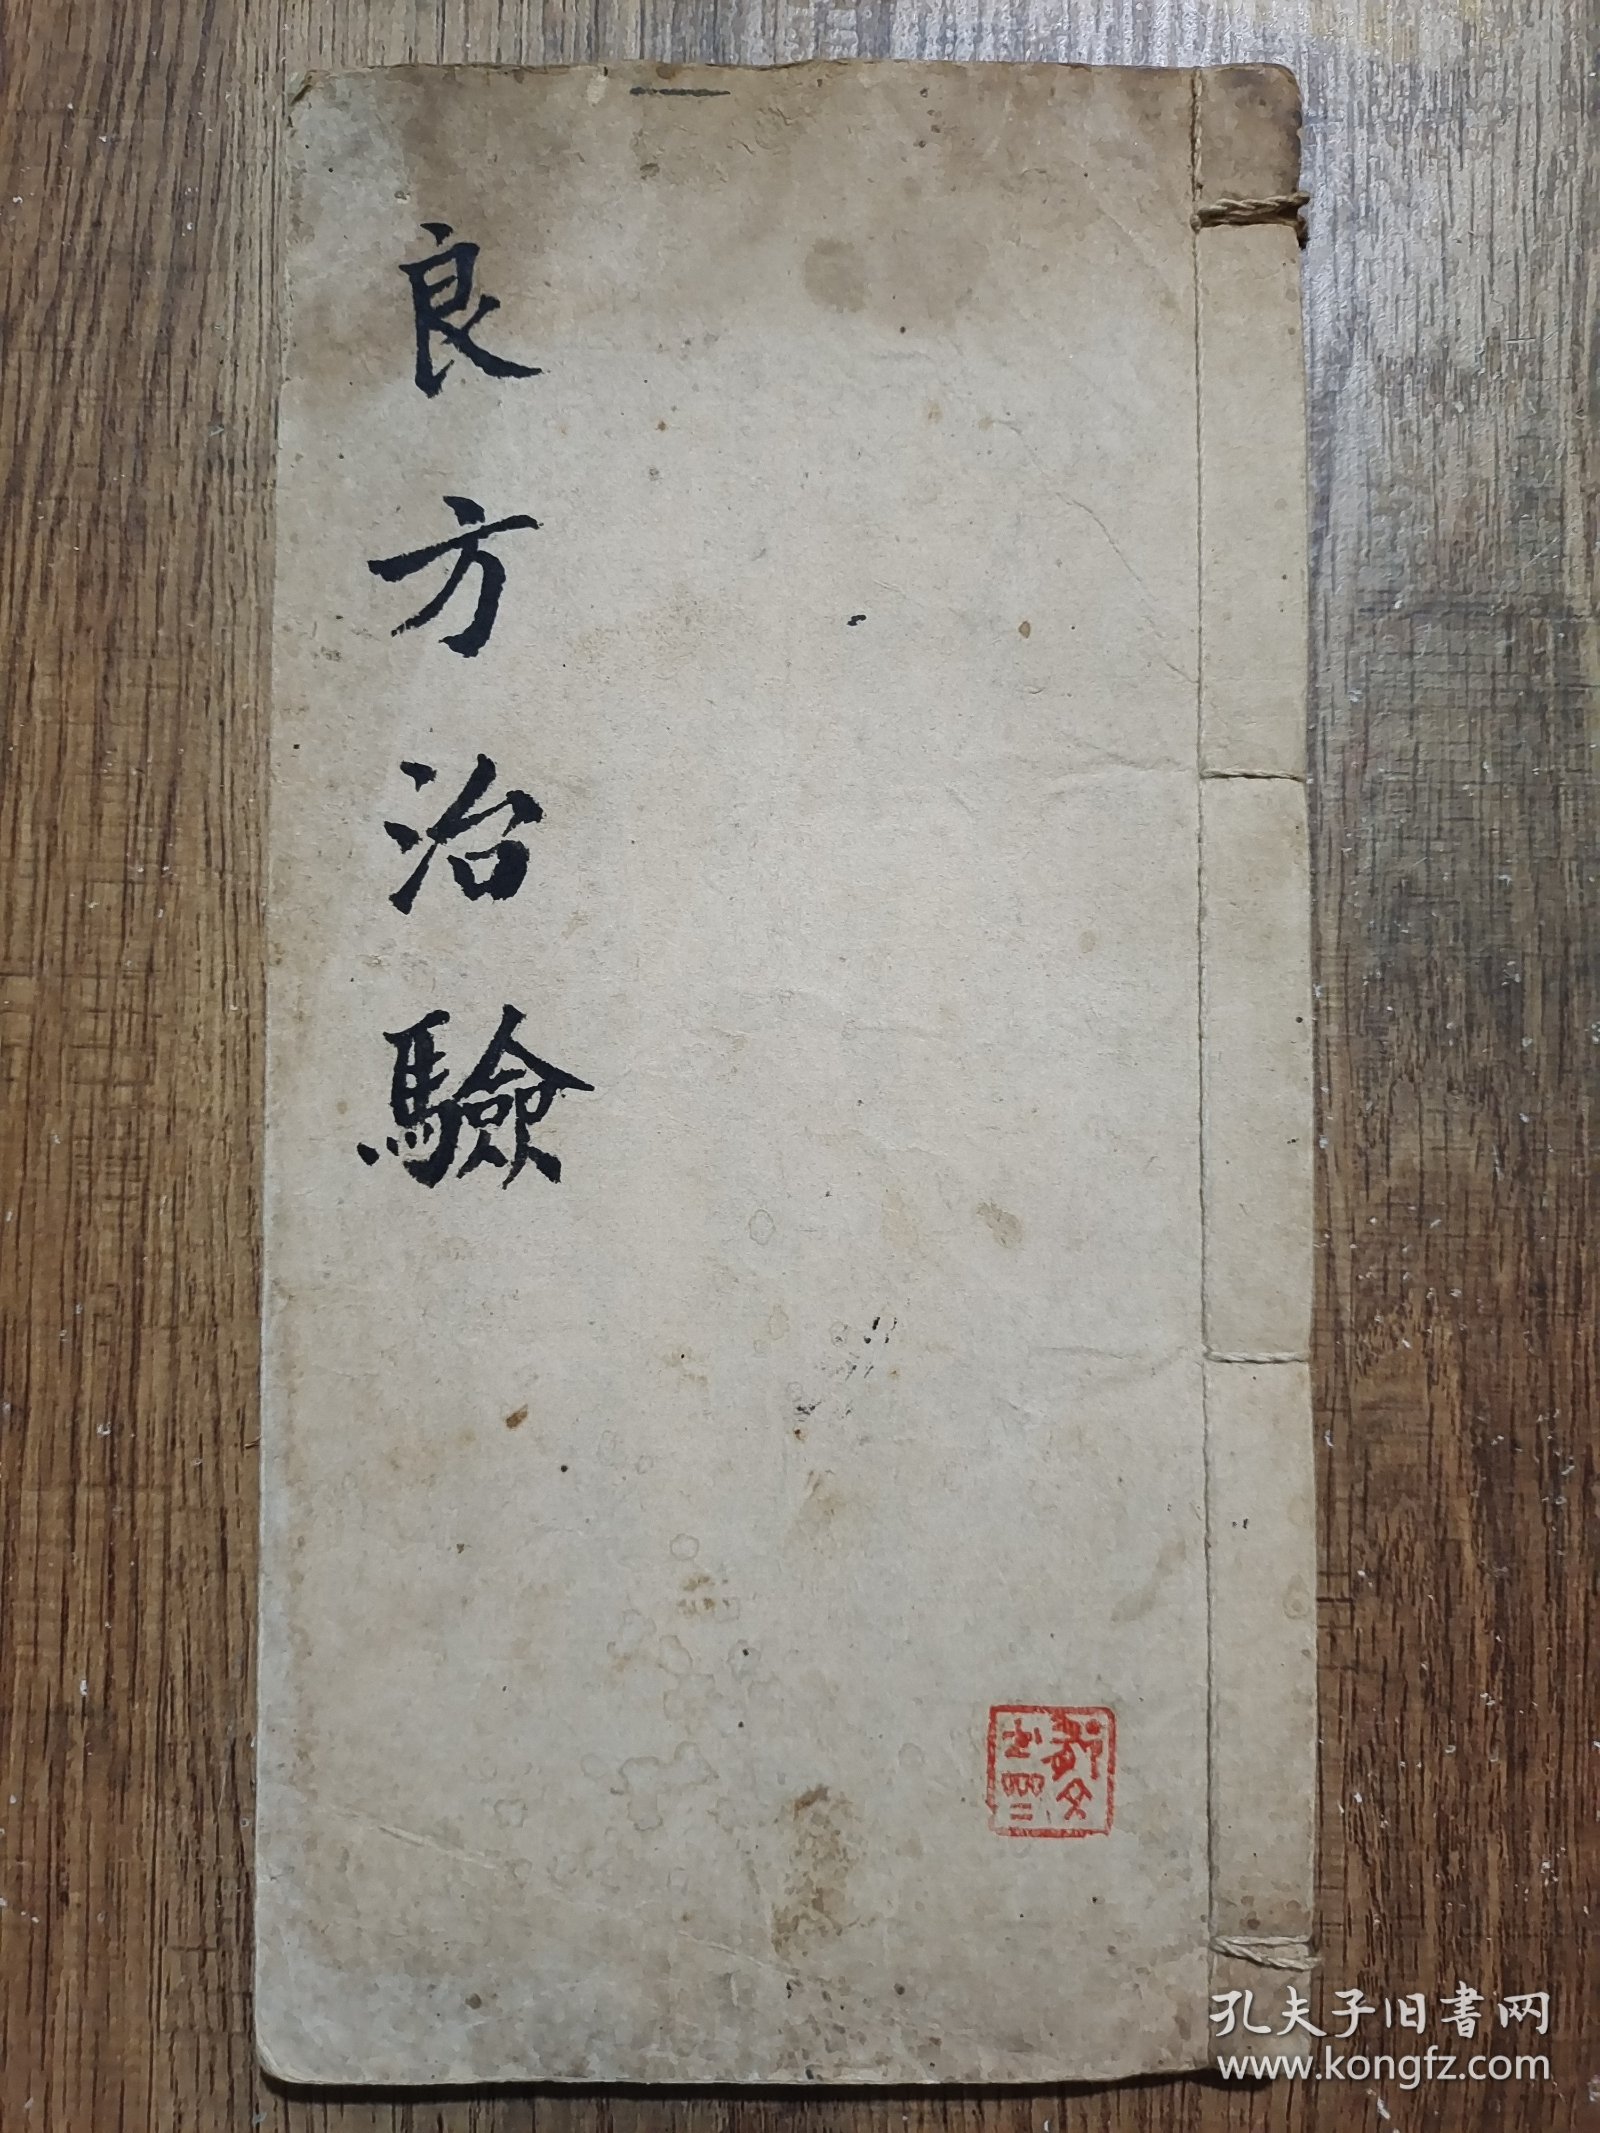 良方治驗
孔夫子旧書网
www.kongfz.com